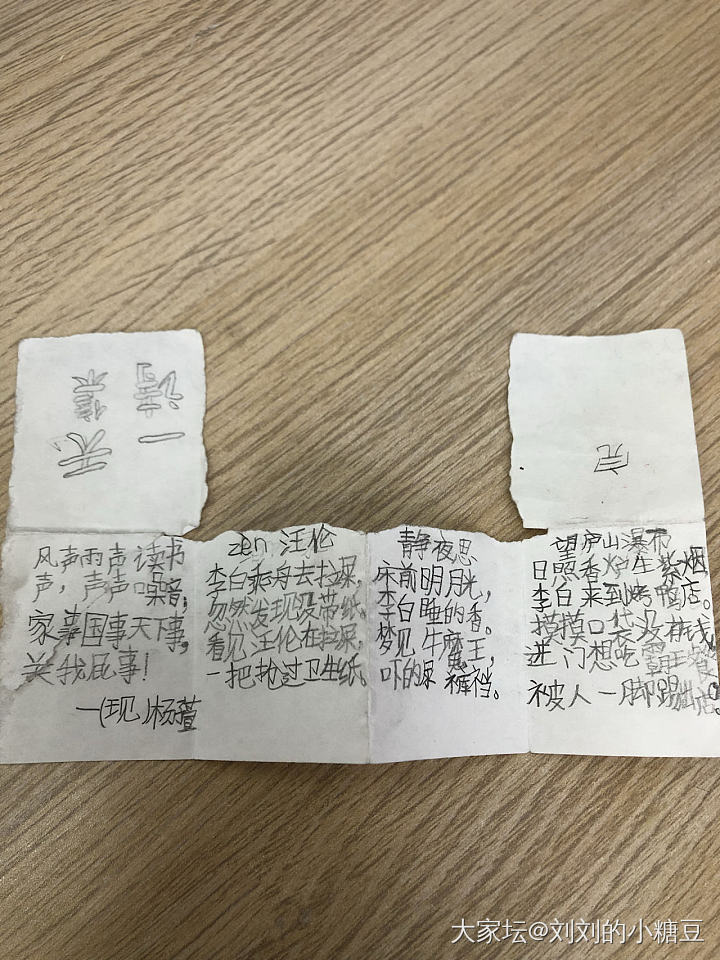 一诗
天 信条
完
风声雨声读书
声，声声噪音，
家事国事天下事，
关我屁事！
一(现)杨萱
zen 汪伦
李白乘舟去拉屎，
忽然发现没带纸。
看见汪伦在拉屎，
一把抢过卫生纸。
静夜思
床前明月光，
李白睡的香。
梦见牛魔王，
吓的尿裤裆。
望庐山瀑布
日照香炉生紫烟，
李白来到烤鸭店。
摸摸口袋没有钱
进门想吃霸王餐
被人一脚踢出店。
大家坛@刘刘的小糖豆